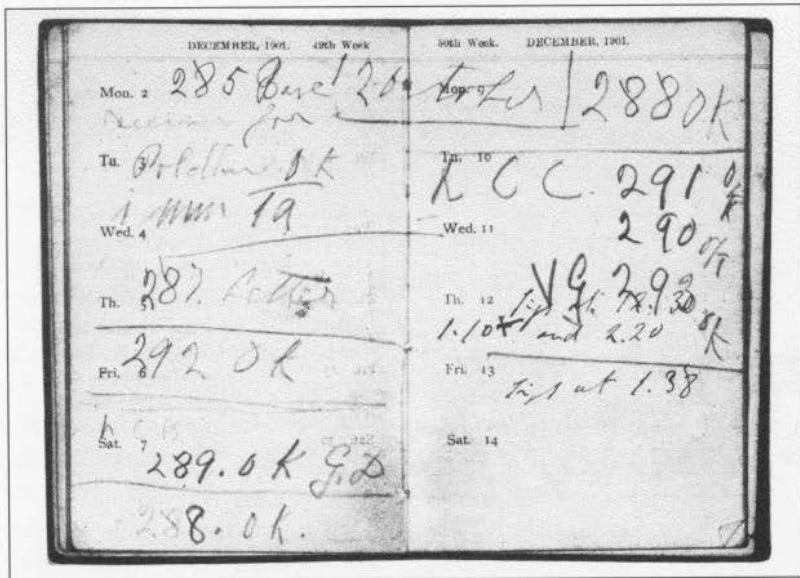 DECEMBER, 1901. 49th Week
Mon. 2 285
receiver for
Tu. 3 Poldhu OK
19
Wed. 4
Th. 5 287. better
Fri. 6 292 OK
Sat. 7
289. OK G.D
288. OK.
50th Week. DECEMBER, 1901.
Mon. 9 288 OK
Tu. 10
291 OK
Wed. 11 290 OK
VG 293 OK
Th. 12 sigs at 12.30
1.10 and 2.20
Fri. 13
sigs at 1.38
Sat. 14